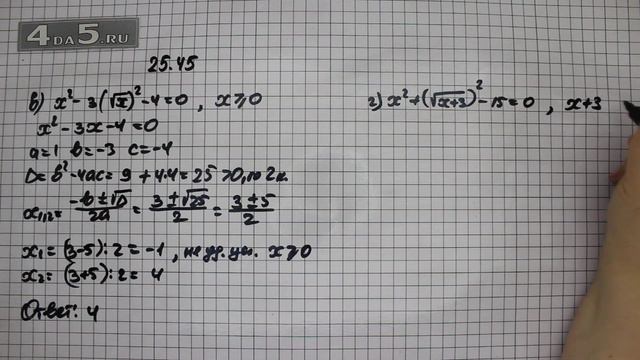 4DA5.RU
25.45
в) x² - 3(√x)² - 4 = 0 , x ≥ 0
x² - 3x - 4 = 0
a = 1 b = -3 c = -4
D = b² - 4ac = 9 + 4·4 = 25 > 0, то 2 к.
x₁,₂ = (-b ± √D)/2a = (3 ± √25)/2 = (3 ± 5)/2
x₁ = (3-5) : 2 = -1 , не уд. усл. x ≥ 0
x₂ = (3+5) : 2 = 4
Ответ: 4
г) x² + (√x+3)² - 15 = 0 , x + 3